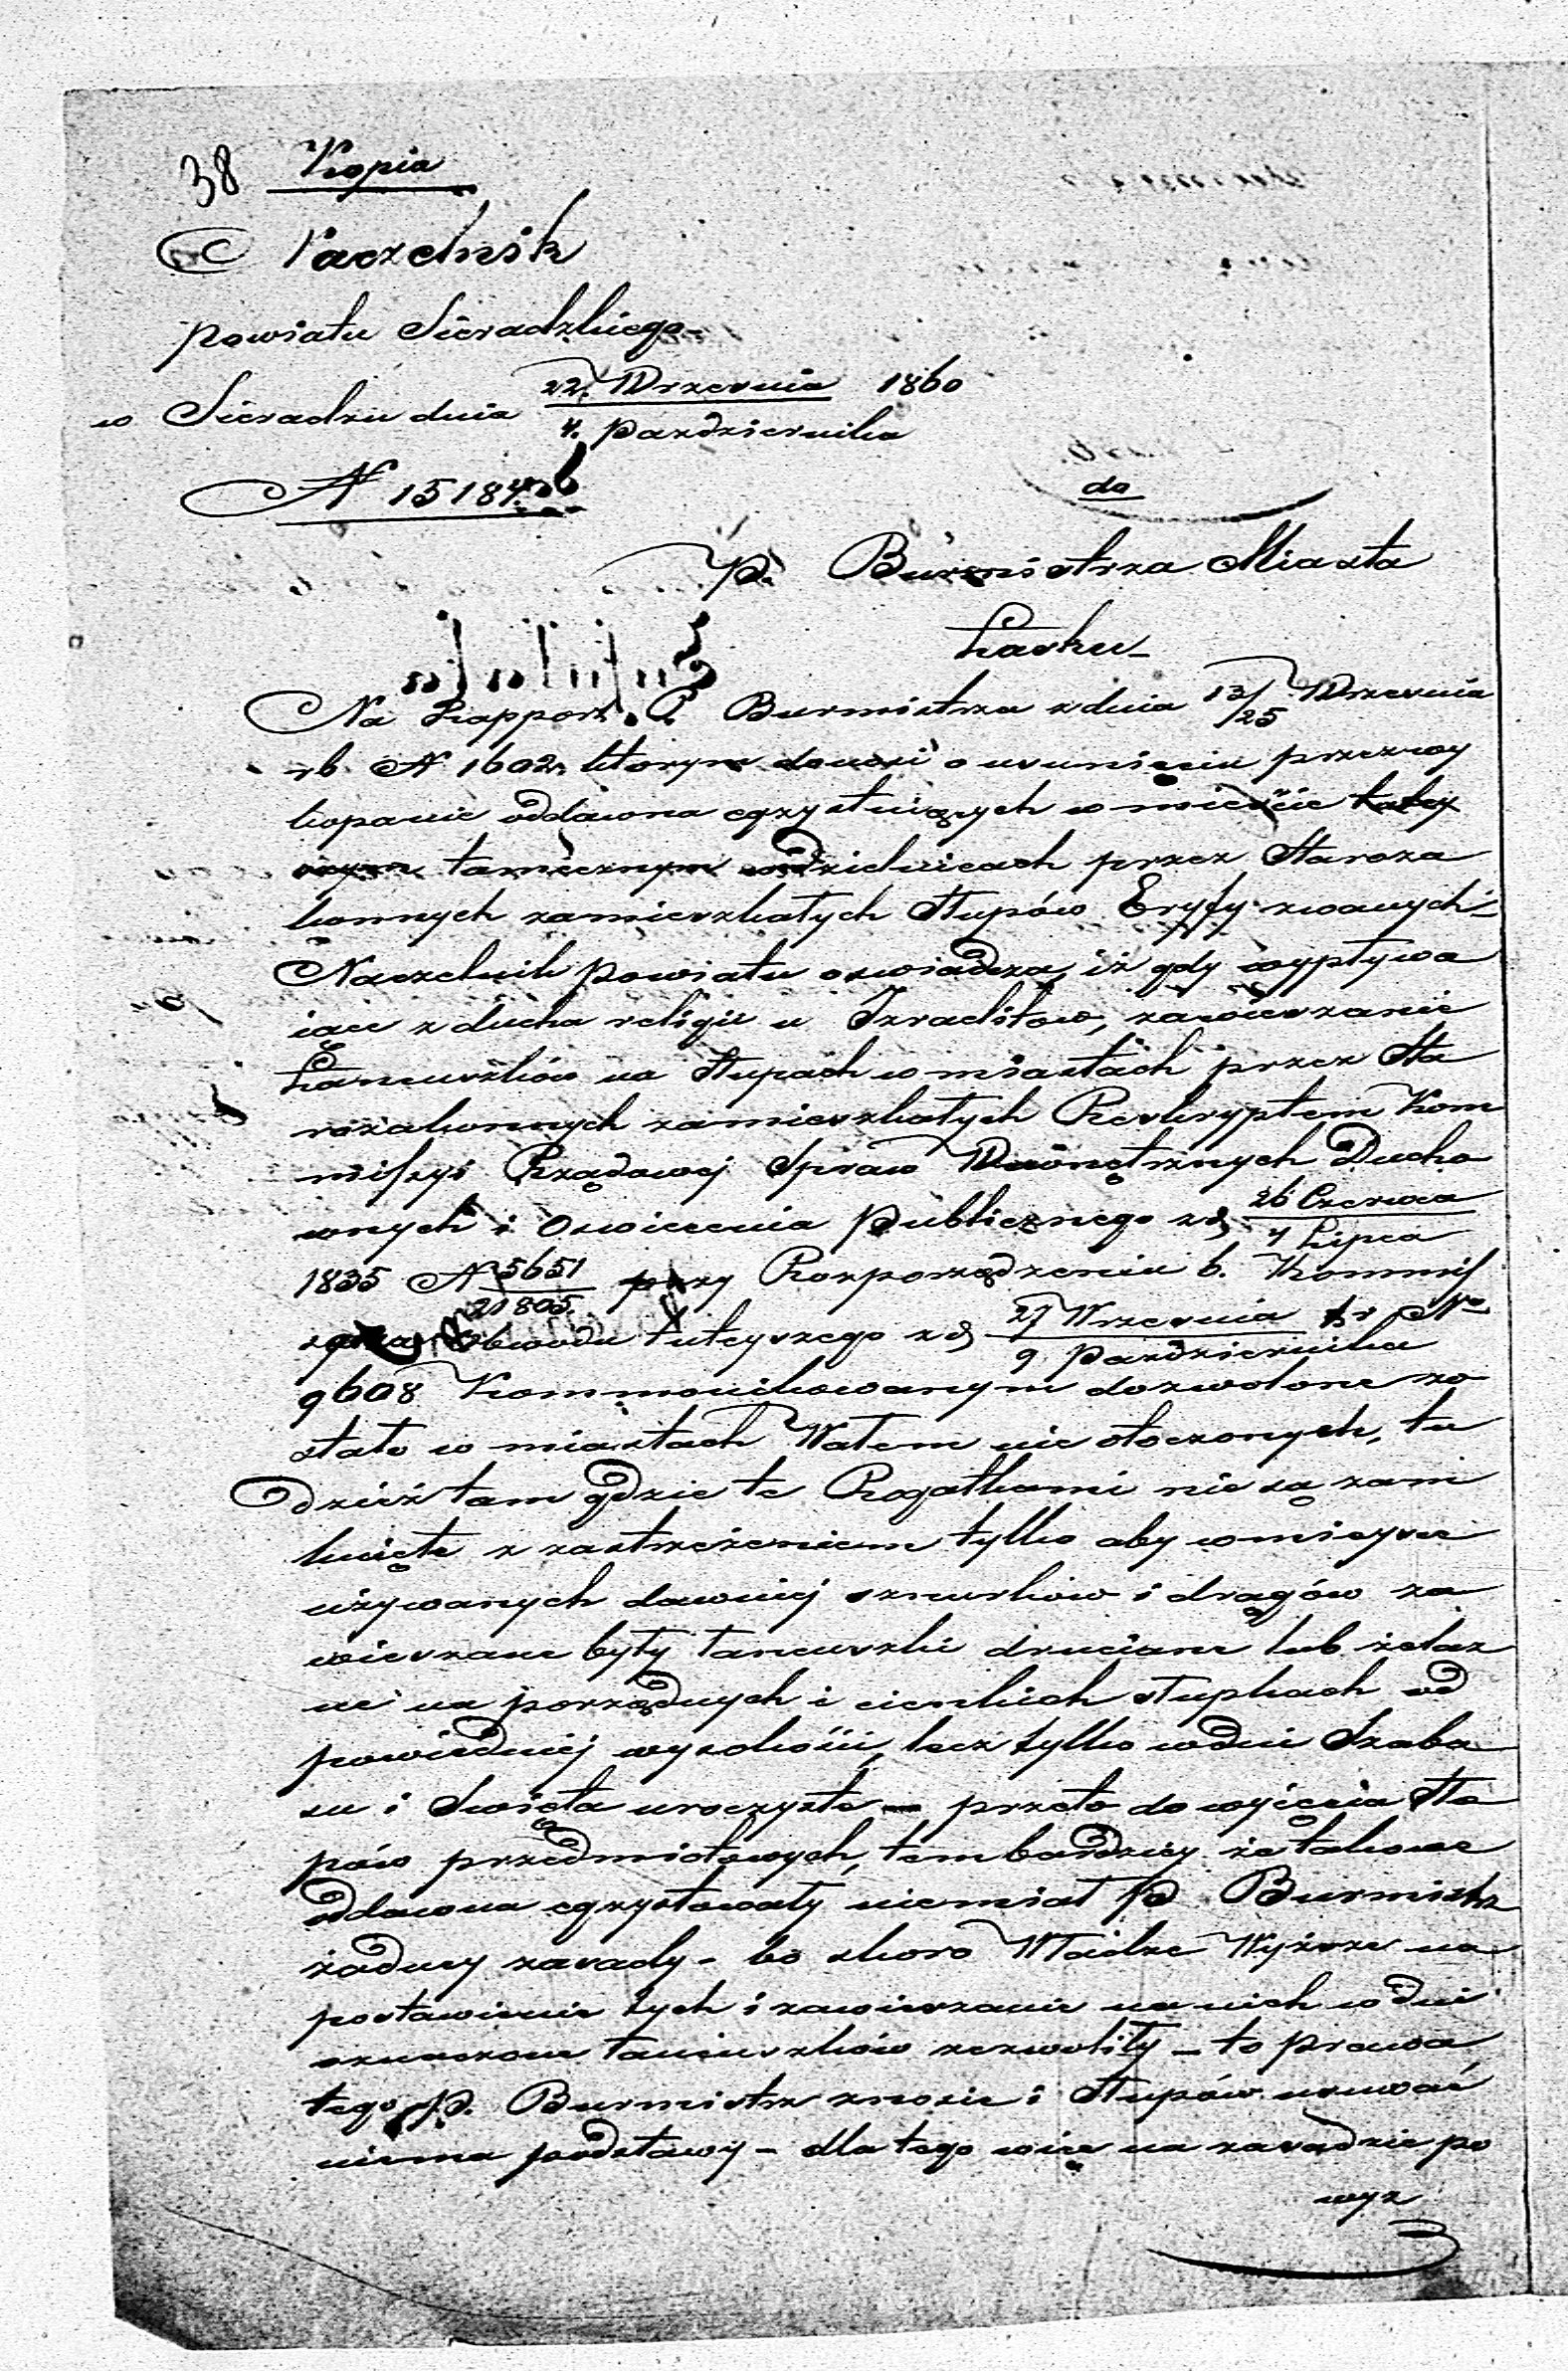 38 Kopia
Naczelnik
powiatu Sieradzkiego
w Sieradzu dnia 22. Wrzesnia 1860
4. Pazdziernika
N 15184
do
P. Burmistrza Miasta
Łasku
Na Rapport P. Burmistrza z dnia 13/25 Wrzesnia
rb. N 1602 którym donosi o usunięciu przez wy
kopanie oddawna egzystuiących w mieście
tamecznym w dzielnicach przez Staroza
konnych zamieszkałych Słupów Eryfy zwanych
Naczelnik Powiatu oswiadcza, iż gdy wypływa
iące z ducha religii u Izraelitow, zawieszanie
Łancuszków na Słupach w miastach przez Sta
rozakonnych zamieszkałych Reskryptem Kom
missyi Rządowej Spraw Wewnętrznych Ducho
wnych i Oswiecenia Publicznego z d 26 Czerwca
1835 N 5651 przy Rozporządzeniu b. Kommis
21805. 27 Wrzesnia tr No
Obwodu tuteyszego z d 9 Pazdziernika
9608 Kommunikowanym dozwolone zo
stało w miastach Wałem nie otoczonych, tu
dzież tam gdzie te Rogatkami nie są zam
knięte z zastrzeżeniem tylko aby w mieysce
używanych dawniej sznurków i drągów za
wieszane były łancuszki druciane lub żelaz
ne na porządnych i cienkich słupkach od
powiedniej wysokości, lecz tylko w dni Szaba
su i Swięta uroczyste – przeto do wyięcia Słu
pów przedmiotowych, tem bardziey że takowe
oddawna egzystowały niemiał P. Burmistrz
żadney zasady – bo skoro Władze Wyższe na
postawienie tych i zawieszanie na nich w dni
oznaczone łancuszków zezwoliły – to prawa
tego P. Burmistrz znosic i Słupów usuwać
niema podstawy – dla tego więc na zasadzie po
wyż